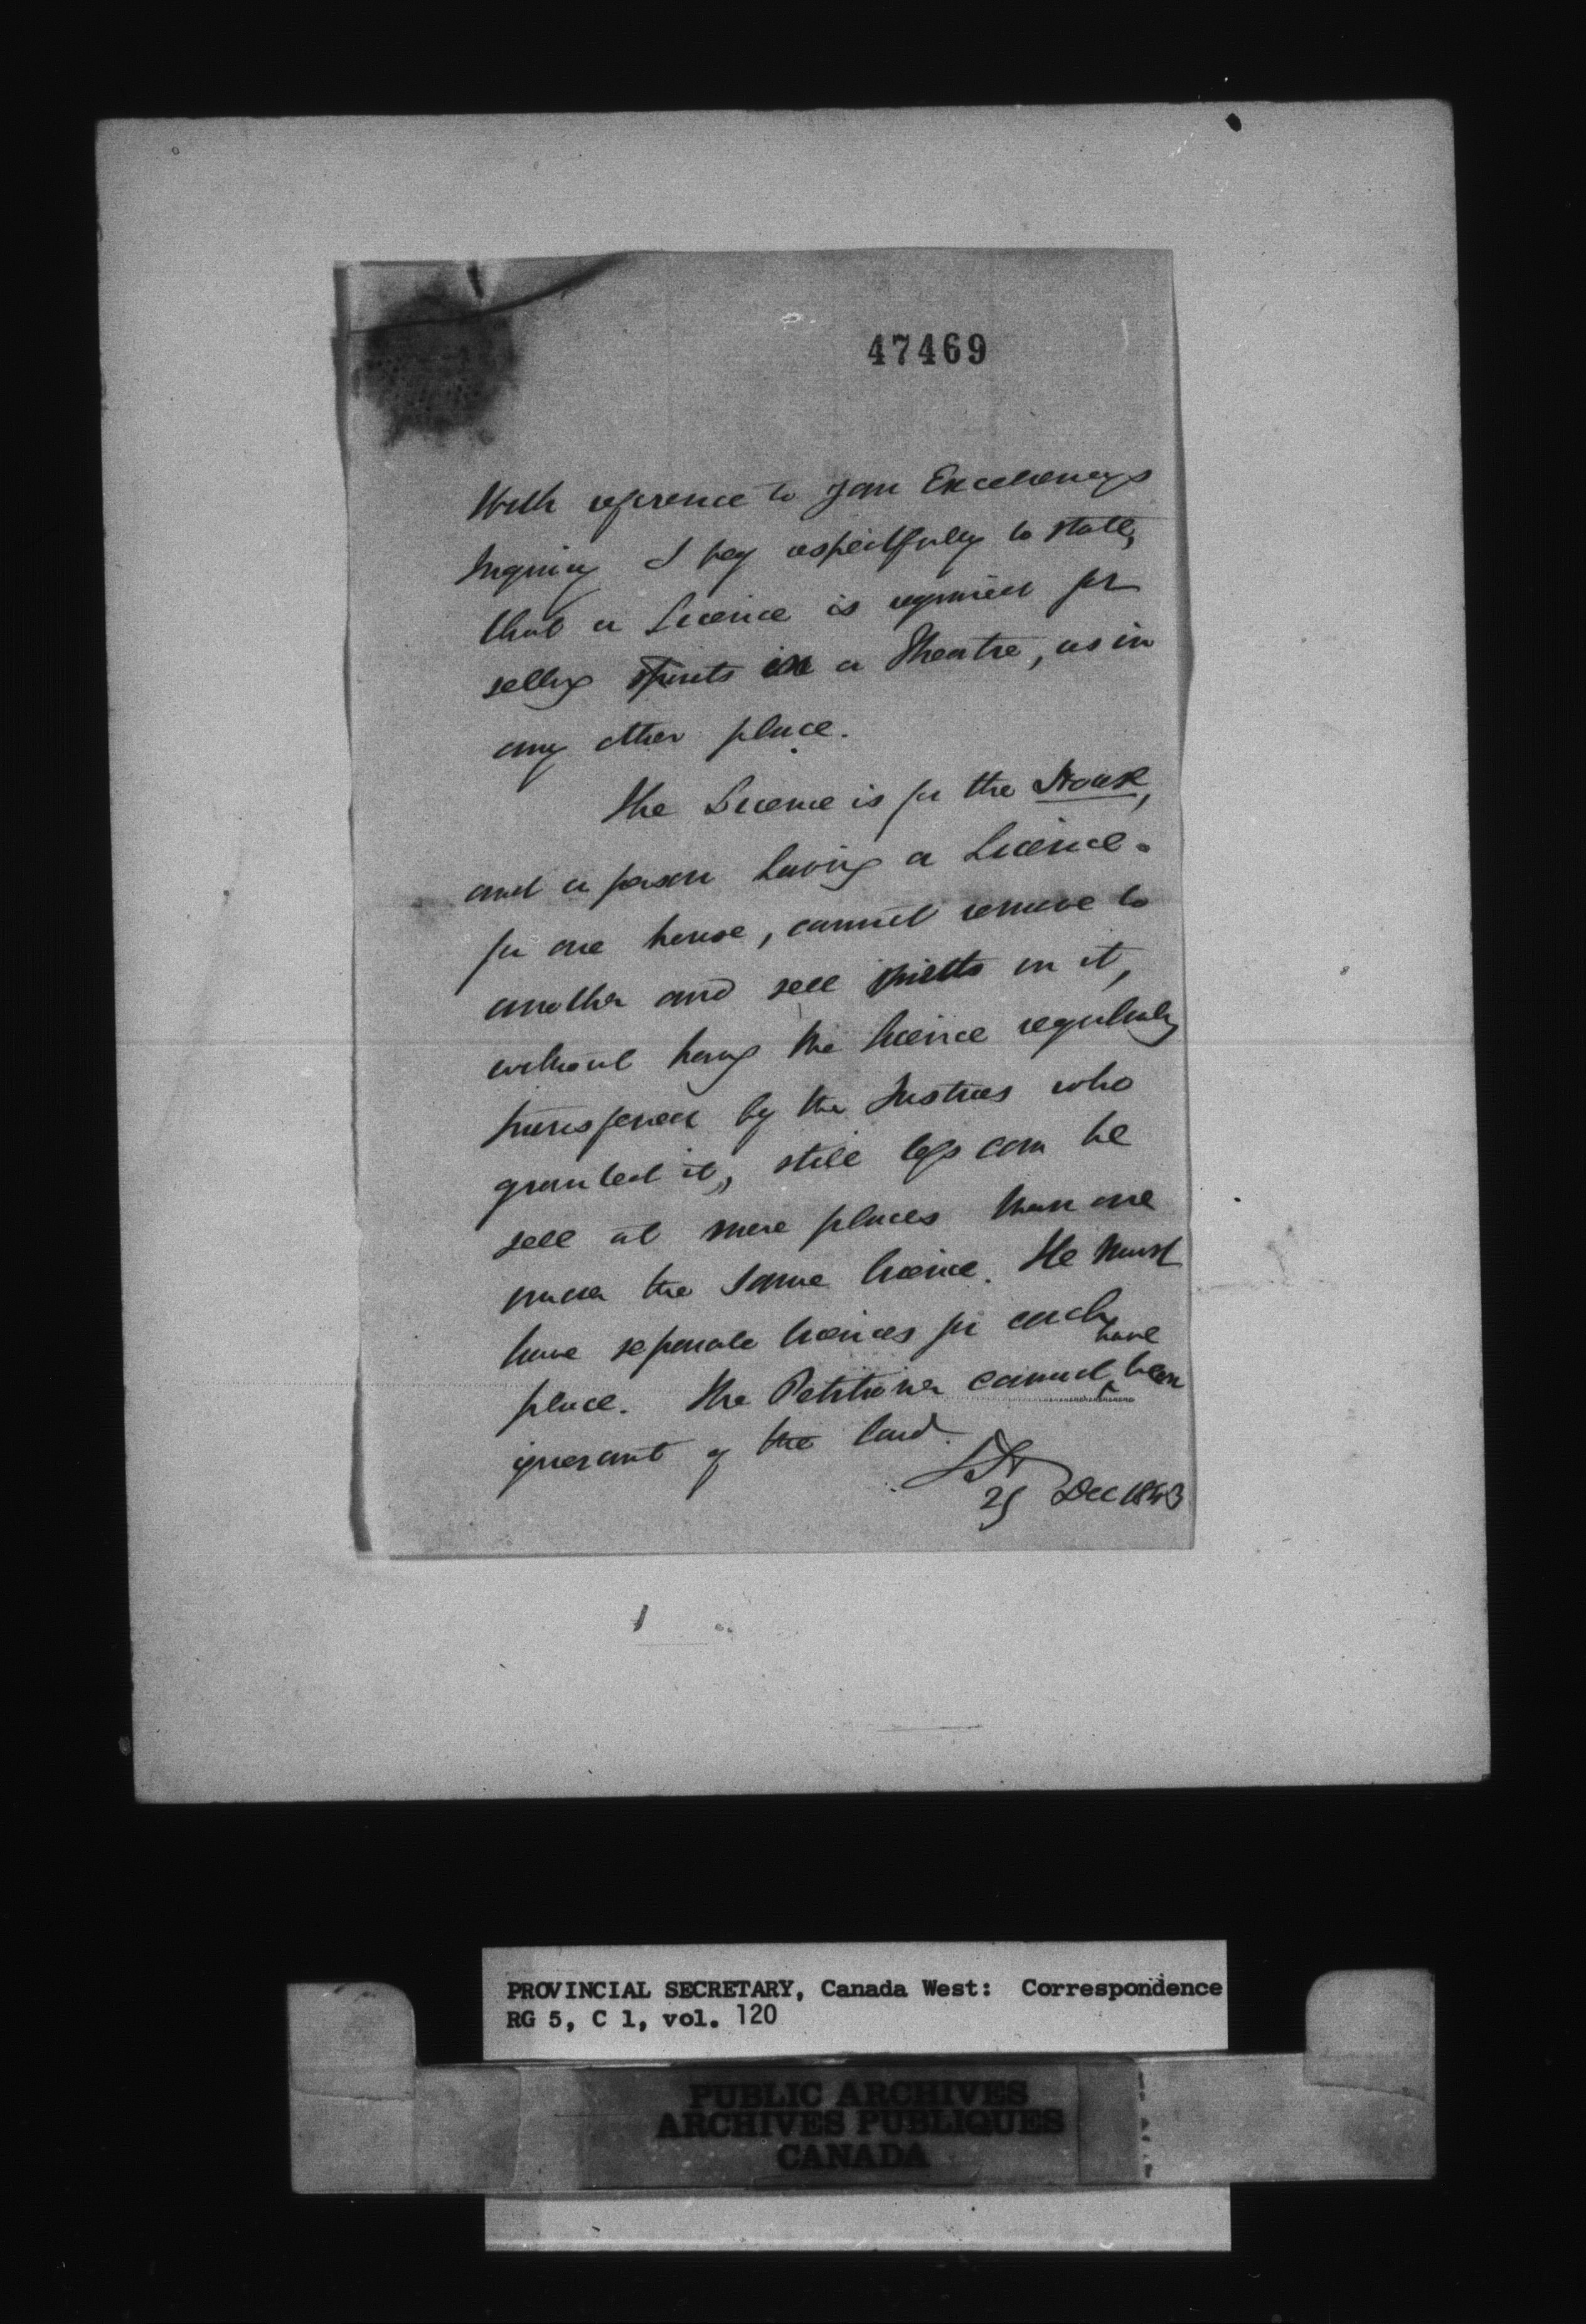 47469
With reference to Your Excellency's
Inquiry I beg respectfully to state,
that a Licence is required for
selling Spirits in a Theatre, as in
any other place.
The Licence is for the House,
and a person having a Licence
for one house, cannot remove to
another and sell spirits in it,
without having the licence regularly
transferred by the Justices who
granted it, still less can he
sell at more places than one
under the same licence. He must
have separate licences for each
place. The Petitioner cannot have been
ignorant of the
25 Dec 1843
PROVINCIAL SECRETARY, Canada West: Correspondence
RG 5, C 1, vol. 120
PUBLIC ARCHIVES
ARCHIVES PUBLIQUES
CANADA